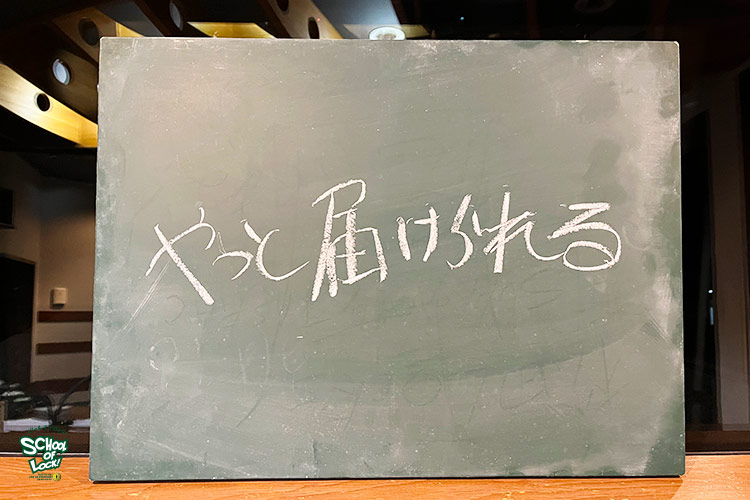 やっと届けられる
SCHOOL
OF
LOCK!